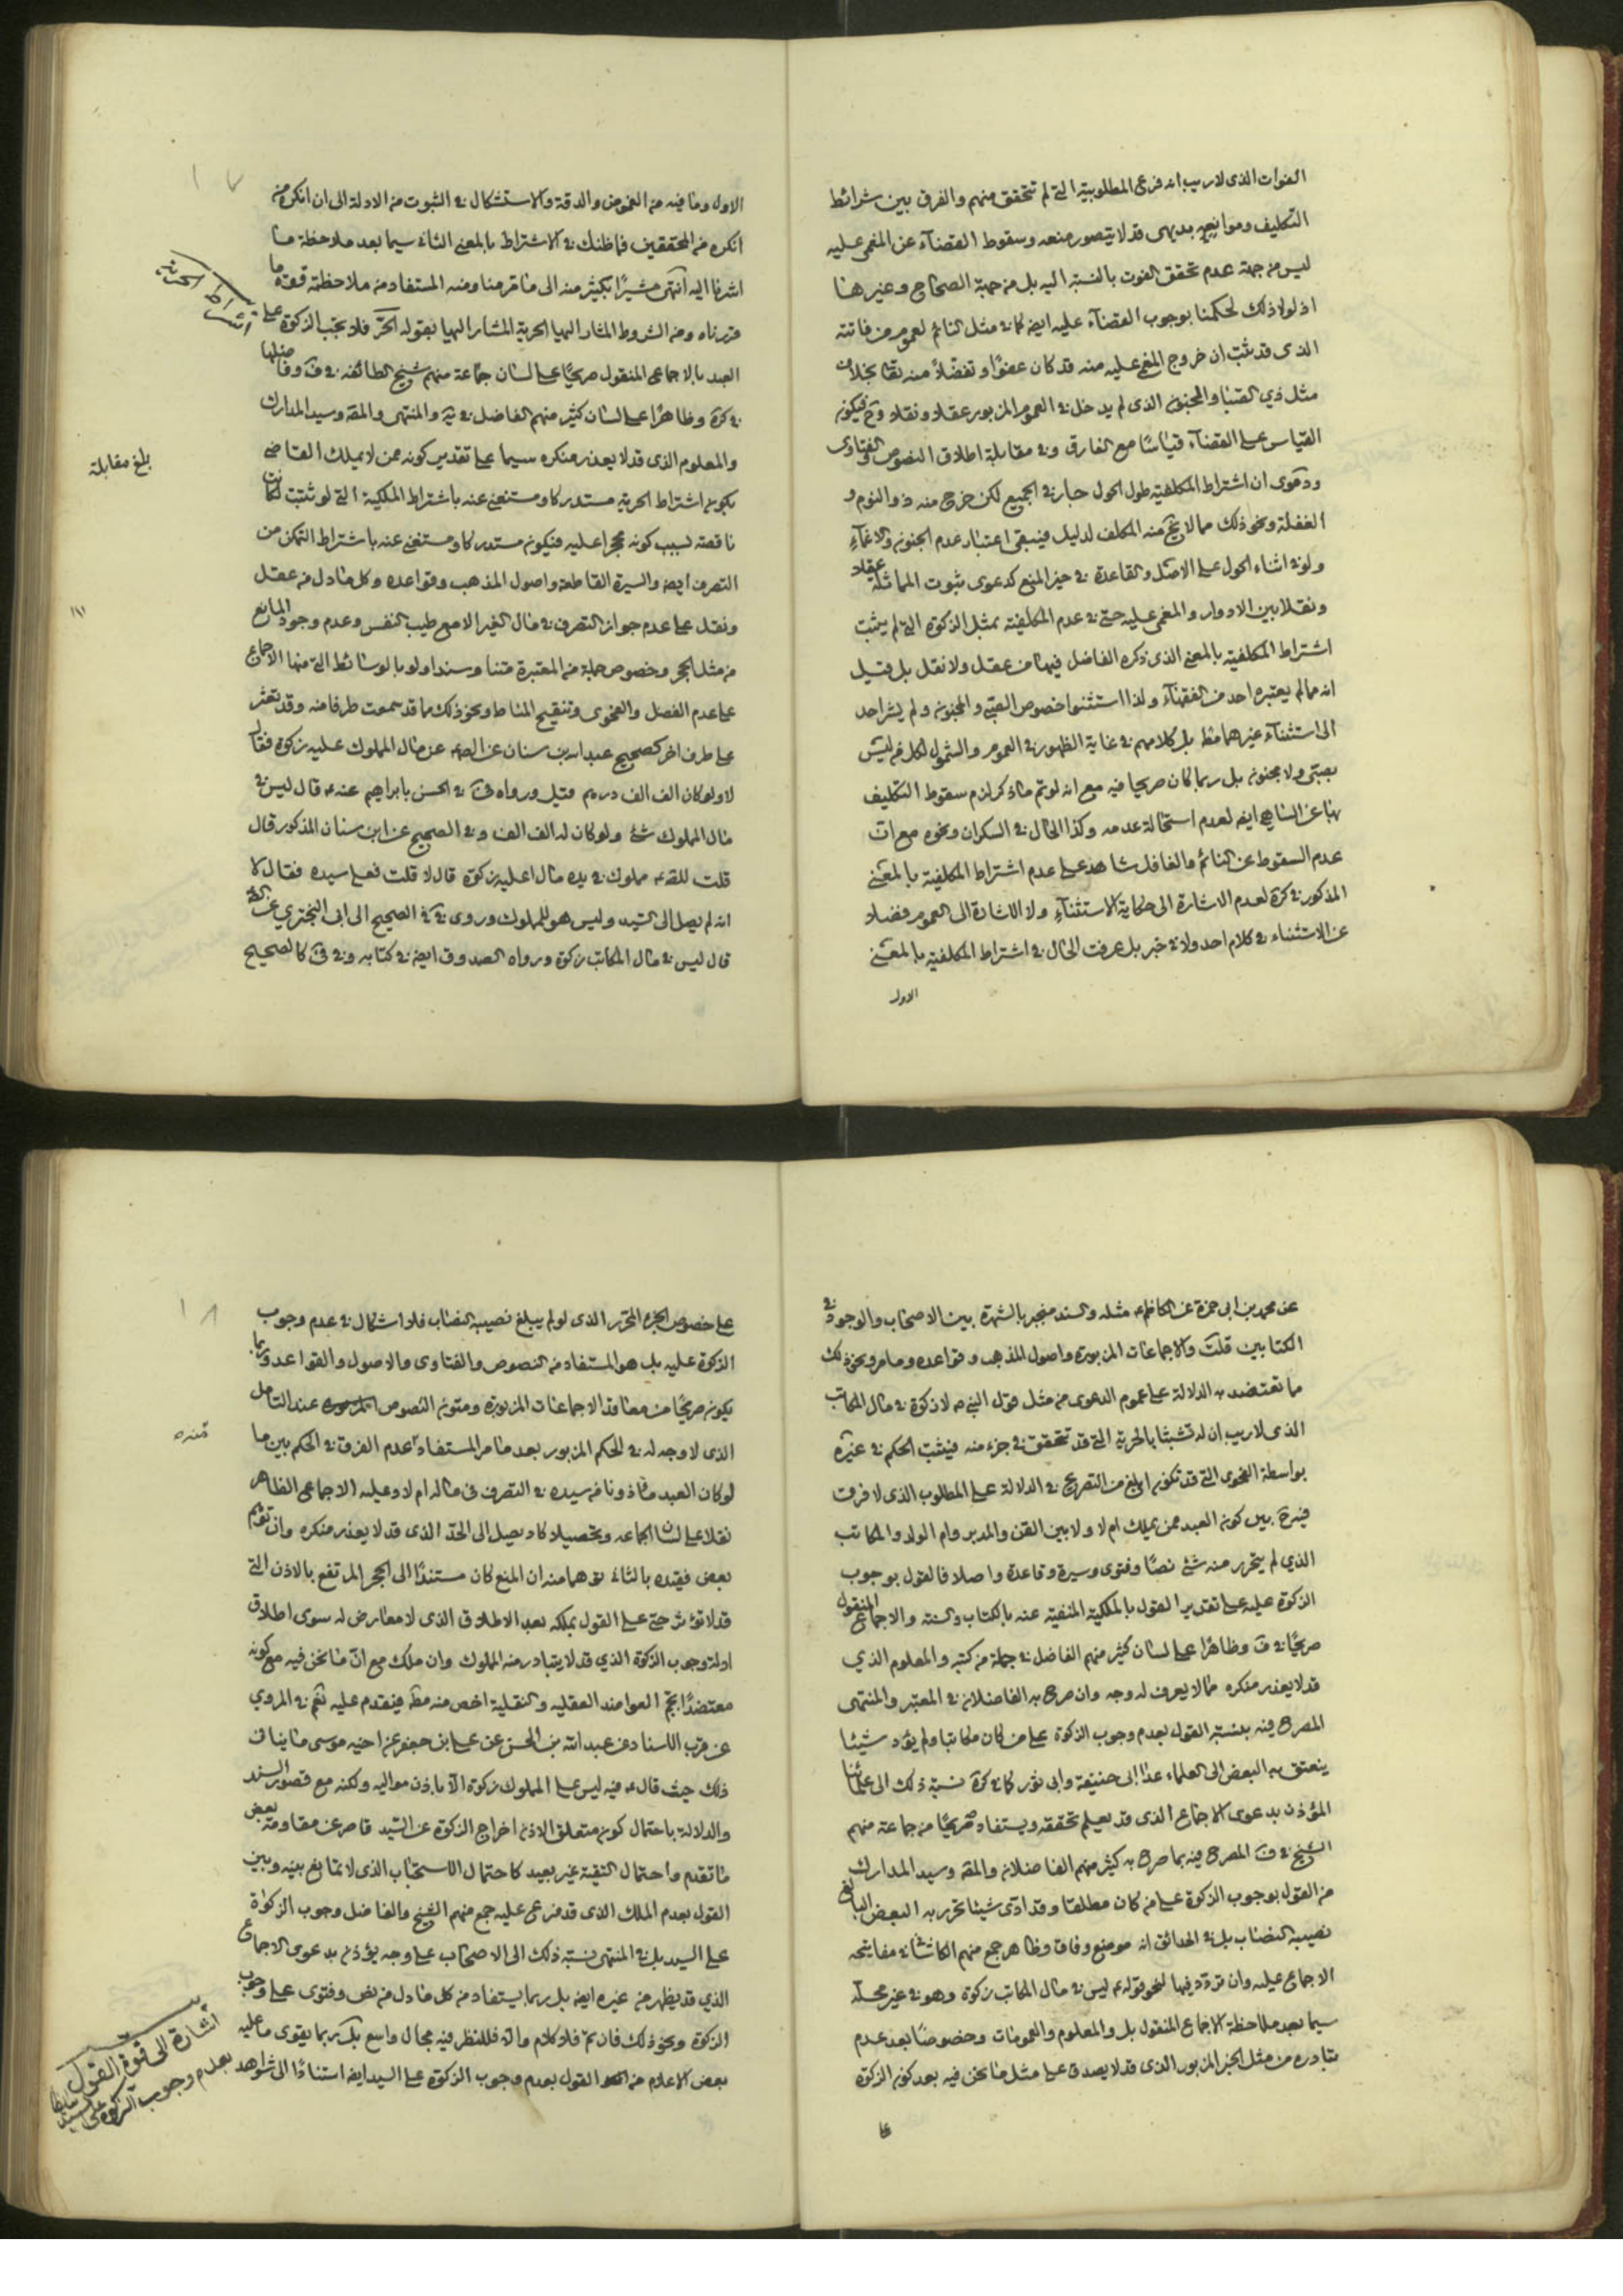 الفوات الذى لاريب انه فرع المطلوبية التى لم تتحقق منهم والفرق بين شرائط
التكليف وموانعه بديهى قد لا يتصور منعه وسقوط القضاء عن المغمى عليه
ليس من جهة عدم تحقق الفوت بالنسبة اليه بل من جهة الصحاح وغيرها
اذ لولا ذلك لحكمنا بوجوب القضاء عليه ايضا كما فى مثل النائم لعموم من فاتته
الذى قد ثبت ان خروج المغمى عليه منه قد كان عفوًا وتفضلاً منه تعا بخلاف
مثل ذي الصبا والجنون الذى لم يدخل فى العموم المزبور عقلا ونقلا وح فيكون
القياس على القضاء قياسًا مع الفارق وفى مقابلة اطلاق النصوص والفتاوى
ودعوى ان اشتراط المكلفية طول الحول جار فى الجميع لكن خرج منه ذو النوم و
الغفلة ونحو ذلك مما لا يخ منه المكلف لدليل فيبقى اعتبار عدم الجنون والاغماء
ولو فى اثناء الحول على الاصل والقاعدة فى حيز المنع كدعوى ثبوت المماثلة عقلا
ونقلا بين الادوار والمغمى عليه حتى فى عدم المكلفية بمثل الزكوة التى لم يثبت
اشتراط المكلفية بالمعنى الذى ذكره الفاضل فيها من عقل ولا نقل بل قيل
انه مما لم يعتبره احد من الفقهاء ولذا استثنوا خصوص الصبى والمجنون ولم يشر احد
الى استثناء غيرهما مط بل كلامهم فى غاية الظهور فى العموم والشمول لكل من ليس
بصبى ولا مجنون بل ربما كان صريحا فيه مع انه لو تم ما ذكر لزم سقوط التكليف
بها عن الساهى ايضا لعدم استحالة عدمه وكذا الحال فى السكران ونحوه مع ان
عدم السقوط عن النائم والغافل شاهد على عدم اشتراط المكلفية بالمعنى
المذكور فى كرة لعدم الاشارة الى حكاية الاستثناء ولا الاشارة الى العموم فضلا
عن الاستثناء فى كلام احد ولا فى خبر بل عرفت الحال فى اشتراط المكلفية بالمعنى
الاول
١٧
الاول وما فيه من الغموض والدقة والاستشكال فى الثبوت من الادلة الى ان انكره من
انكره من المحققين فما ظنك فى الاشتراط بالمعنى الثانى سيما بعد ملاحظة ما
اشرنا اليه انتهى مشيرًا بكثير منه الى ما قدمنا ومنه المستفاد من ملاحظته قوة ما
قررناه ومن الشروط المشار اليها الحرية المشار اليها بقوله الحر فلا تجب الزكوة على
العبد بالاجماع المنقول صريحًا على لسان جماعة منهم شيخ الطائفة فى ف وفاضلها
فى كرة وظاهرًا على لسان كثير منهم الفاضل فى ية والمنتهى والمقه وسيد المدارك
والمعلوم الذى قد لا يعذر منكره سيما على تقدير كونه ممن لا يملك القاضى
بكون اشتراط الحرية مستدركا ومستغنى عنه باشتراط الملكية التى لو ثبتت لكانت
ناقصة لسبب كونه محجرا عليه فيكون مستدركا ومستغنى عنه باشتراط التمكن من
التصرف ايضا والسيرة القاطعة واصول المذهب وقواعده وكل ما دل من عقل
ونقل على عدم جواز التصرف فى مال الغير الا مع طيب النفس وعدم وجود المانع
من مثل الحجر وخصوص جملة من المعتبرة متنا وسندا ولو بالوسائط التى منها الاجماع
على عدم الفصل والفحوى وتنقيح المناط ونحو ذلك مما قد سمعت طرفا منه وقد تعثر
على طرف اخر كصحيح عبد الله بن سنان عن الصادق ع عن مال المملوك عليه زكوة فقال
لا ولو كان الف الف درهم وقيل ورواه فى فى الحسن بابراهيم عنه ع قال ليس فى
مال المملوك شئ ولو كان له الف الف وفى الصحيح عن ابن سنان المذكور قال
قلت له ع مملوك فى يده مال اعليه زكوة قال لا قلت فعلى سيده فقال لا
انه لم يصل الى السيد وليس هو للمملوك وروى فى يه فى الصحيح الى ابى البخترى عن
قال ليس فى مال المكاتب زكوة ورواه الصدوق ايضا فى كتابه وفى فى كالصحيح
اشتراط الحرية
بلغ مقابلة
عن محمد بن ابى حمزة عن الكاظم ع مثله والسند منجبر بالشهرة بين الاصحاب والوجود فى
الكتابين قلت والاجماعات المزبورة واصول المذهب وقواعده وما مر ونحو ذلك
ما تعتضد به الدلالة على عموم الدعوى من مثل قول النبى ص لا زكوة فى مال المكاتب
الذى لاريب ان له تشبثا بالحرية التى قد تتحقق فى جزء منه فيثبت الحكم فى غيره
بواسطة الفحوى التى قد تكون ابلغ من التصريح فى الدلالة على المطلوب الذى لا فرق
فيه ح بين كون العبد ممن يملك ام لا ولا بين القن والمدبر وام الولد والمكاتب
الذي لم يتحرر منه شئ نصًا وفتوى وسيرة وقاعدة واصلا فالقول بوجوب
الزكوة عليه على تقدير القول بالملكية المنفية عنه بالكتاب والسنة والاجماع المنقول
صريحًا فى ف وظاهرًا على لسان كثير منهم الفاضل فى جملة من كتبه والمعلوم الذي
قد لا يعذر منكره مما لا يعرف له وجه وان صرح به الفاضلان فى المعتبر والمنتهى
المصرح فيه بنسبة القول بعدم وجوب الزكوة على من كان مكاتبا ولم يؤد شيئا
ينعتق به البعض الى العلماء عدا ابى حنيفة وابى ثور كما فى كرة نسبة ذلك الى علمائنا
المؤذن بدعوى الاجماع الذى قد يعلم تحققه ويستفاد صريحًا من جماعة منهم
الشيخ فى ف المصرح فيه بما صرح به كثير منهم الفاضلان والمقه وسيد المدارك
من القول بوجوب الزكوة على من كان مطلقا وقد ادى شيئا تحرر به البعض البالغ
نصيبه النصاب بل فى الحدائق انه موضع وفاق وظاهر جمع منهم الكاشانى فى مفاتيحه
الاجماع عليه وان تردد فيها لنحو قوله ع ليس فى مال المكاتب زكوة وهو فى غير محله
سيما بعد ملاحظة الاجماع المنقول بل والمعلوم والعمومات وخصوصًا بعد عدم
تبادره من مثل الخبر المزبور الذى قد لا يصدق على مثل ما نحن فيه بعد كون الزكوة
على
١٨
على خصوص الجزء المحرر الذى لو لم يبلغ نصيبه النصاب فلا اشكال فى عدم وجوب
الزكوة عليه بل هو المستفاد من النصوص والفتاوى والاصول والقواعد وربما
يكون صريحًا من معاقد الاجماعات المزبورة ومتون النصوص عند التامل
الذى لا وجه له فى الحكم المزبور بعد ما مر المستفاد عدم الفرق فى الحكم بين ما
لو كان العبد ماذونا من سيده فى التصرف فى ماله ام لا وعليه الاجماع الظاهر
نقلا على لسان الجماعه وتحصيلا كاد يصل الى الحد الذى قد لا يعذر منكره وان توهم
بعض فقيده بالثانى توهما منه ان المنع كان مستندًا الى الحجر المرتفع بالاذن التى
قد لا تؤثر حتى على القول بملكه بعد الاطلاق الذى لا معارض له سوى اطلاق
ادلة وجوب الزكوة الذي قد لا يتبادر منه المملوك وان ملك مع ان ما نحن فيه مع كونه
معتضدًا بجم العواضد العقليه والنقلية اخص منه مط فيقدم عليه نعم فى المروي
عن قرب الاسناد عن عبد الله بن الحسن عن على بن جعفر عن اخيه موسى ما ينافى
ذلك حيث قال ع فيه ليس على المملوك زكوة الا باذن مواليه ولكنه مع قصور السند
والدلالة باحتمال كون متعلق الاذن اخراج الزكوة عن السيد قاصر عن مقاومة بعض
ما تقدم واحتمال التقية غير بعيد كاحتمال الاستحباب الذى لا تمانع بينه وبين
القول بعدم الملك الذى قد فرع عليه جمع منهم الشيخ والفاضل وجوب الزكوة
على السيد بل فى المنتهى نسبة ذلك الى الاصحاب على وجه يؤذن بدعوى الاجماع
الذي قد يظهر من غيره ايضا بل ربما يستفاد من كل ما دل من نص وفتوى على وجوب
الزكوة ونحو ذلك فان تم فلا كلام والا فللنظر فيه مجال واسع بل ربما يقوى ما عليه
بعض الاعلام من القول بعدم وجوب الزكوة على السيد ايضا استنادًا الى شواهد
اشارة الى قوة القول
بعدم وجوب الزكوة على
السيد ايضا